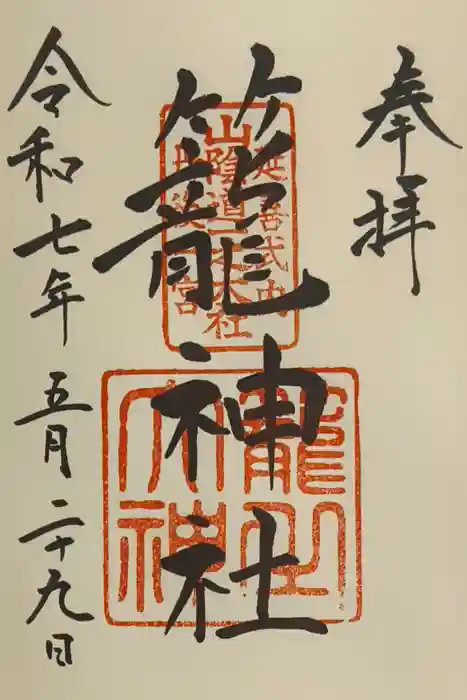 奉拝
延喜式内
山陰道一之大社
丹後一宮
籠神社
籠之
大神
令和七年五月二十九日